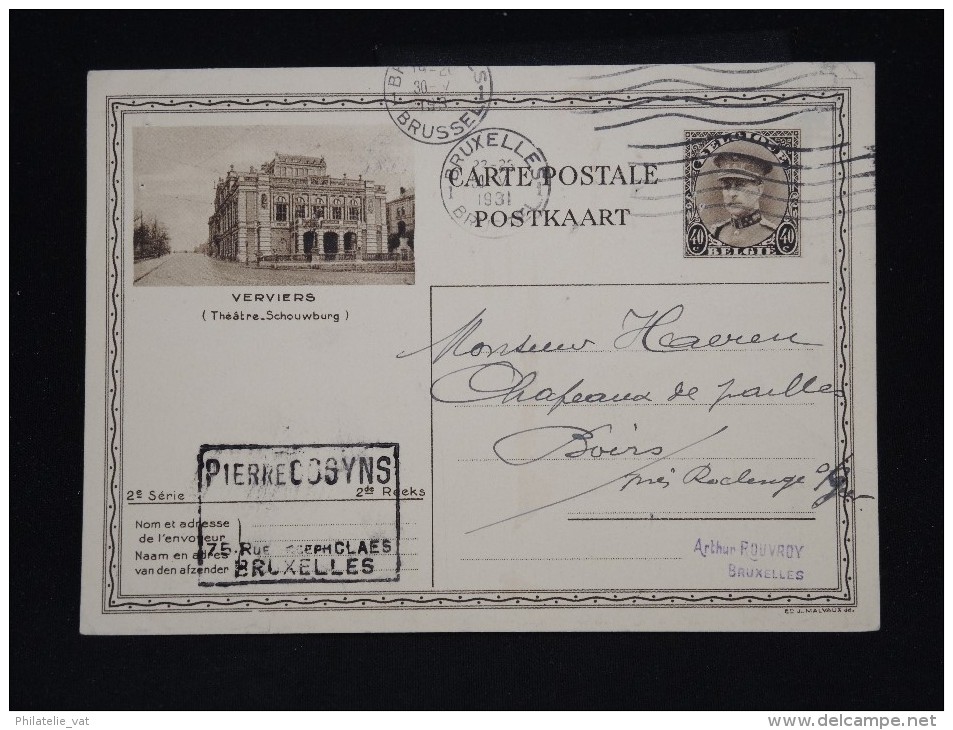 BRUSSEL
BRUXELLES
1931
CARTE POSTALE
POSTKAART
BELGIQUE
40 c 40 c
BELGIE
VERVIERS
(Théâtre_Schouwburg)
Monsieur Haeren
Chapeaux de pailles
Boirs
près Roclenge s/Geer
PIERRE COSYNS
2e Série 2de Reeks
Nom et adresse
de l'envoyeur
Naam en adres
van den afzender
75. RUE JOSEPH CLAES
BRUXELLES
Arthur ROUVROY
BRUXELLES
ED. J. MALVAUX
Philatelie_vat
www.delcampe.net